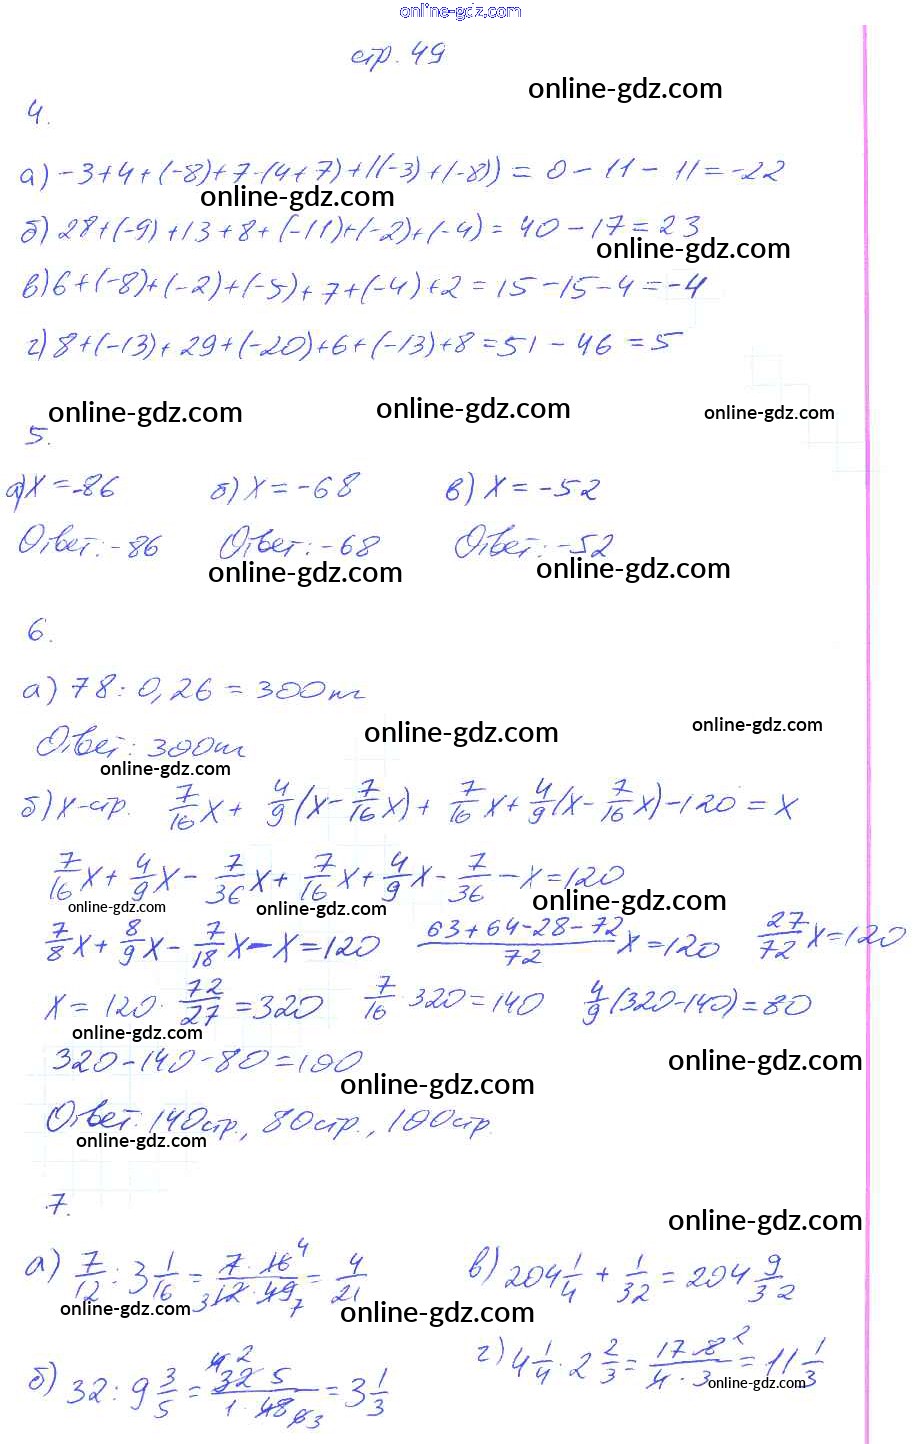 online-gdz.com
стр. 49
online-gdz.com
4.
а) -3+4+(-8)+7-(4+7)+((-3)+(-8)) = 0-11-11=-22
online-gdz.com
б) 28+(-9)+13+8+(-11)+(-2)+(-4) = 40-17=23
online-gdz.com
в) 6+(-8)+(-2)+(-5)+7+(-4)+2=15-15-4=-4
г) 8+(-13)+29+(-20)+6+(-13)+8=51-46=5
online-gdz.com online-gdz.com online-gdz.com
5.
а) х=-86 б) х=-68 в) х=-52
Ответ: -86 Ответ: -68 Ответ: -52
online-gdz.com online-gdz.com
6.
а) 78:0,26=300т
online-gdz.com online-gdz.com
Ответ: 300т
online-gdz.com
б) х-стр. 7/16 х + 4/9 (х - 7/16 х) + 7/16 х + 4/9 (х - 7/16 х) - 120 = х
7/16 х + 4/9 х - 7/36 х + 7/16 х + 4/9 х - 7/36 - х = 120
online-gdz.com online-gdz.com online-gdz.com
7/8 х + 8/9 х - 7/18 х - х = 120 63+64-28-72/72 х = 120 27/72 х = 120
х = 120 · 72/27 = 320 7/16 · 320 = 140 4/9 (320-140) = 80
online-gdz.com
320-140-80=100
online-gdz.com online-gdz.com
Ответ: 140стр., 80стр., 100стр.
online-gdz.com
7.
online-gdz.com
а) 7/12 : 3 1/16 = 7·16 4/3 12·49 7 = 4/21 в) 204 1/4 + 1/32 = 204 9/32
online-gdz.com online-gdz.com
б) 32 : 9 3/5 = 4 2 32 5/1·48 6 3 = 3 1/3 г) 4 1/4 · 2 2/3 = 17·8 2/4·3 = 11 1/3
online-gdz.com